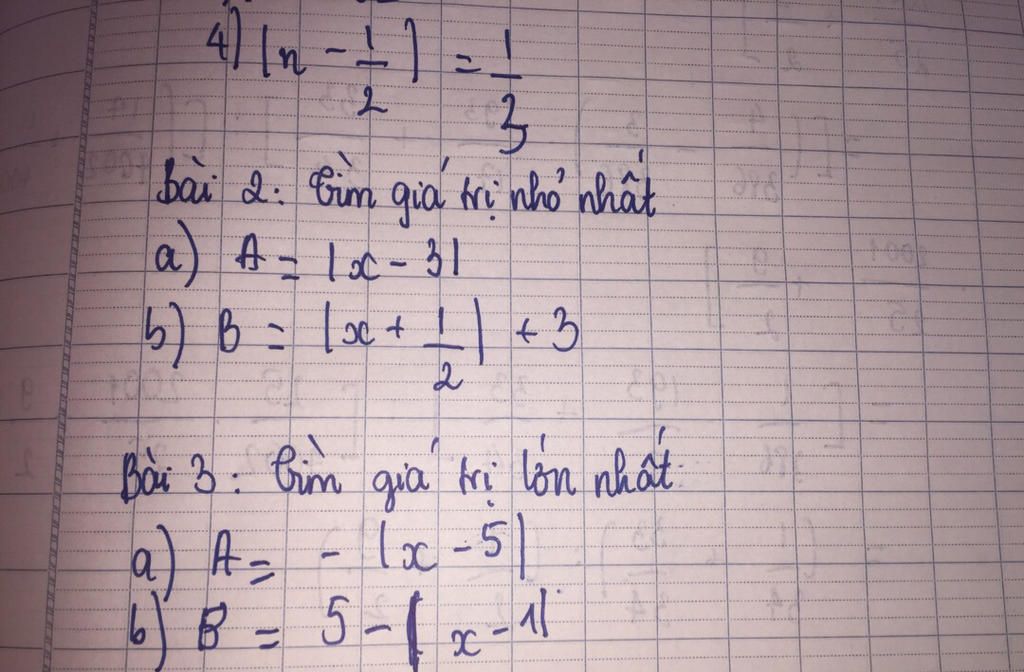 4) |n - 1/2| = 1/3
Bài 2: Tìm giá trị nhỏ nhất
a) A = |x - 3|
b) B = |x + 1/2| + 3
Bài 3: Tìm giá trị lớn nhất
a) A = - |x - 5|
b) B = 5 - |x - 1|